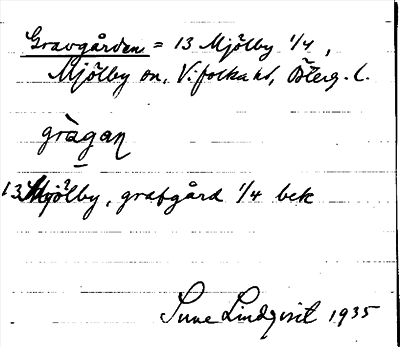 Gravgården = 13 Mjölby 1/4,
Mjölby sn, Vifolka hd, Österg. l.
gràgan
13 Mjölby, gravgård 1/4 bek
Sune Lindqvist 1935